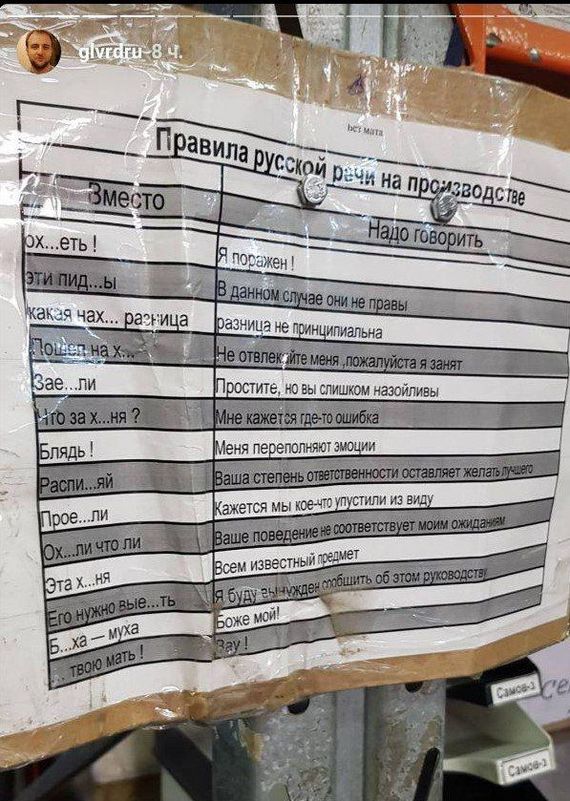 glvrdru 8 ч.
без мата
Правила русской речи на производстве
Вместо Надо говорить
ох...еть ! Я поражен !
эти пид...ы В данном случае они не правы
какая нах... разница разница не принципиальна
Пошел на х... Не отвлекайте меня ,пожалуйста я занят
Зае...ли Простите, но вы слишком назойливы
Что за х...ня ? Мне кажется где-то ошибка
Блядь ! Меня переполняют эмоции
Распи...яй Ваша степень ответственности оставляет желать лучшего
Прое...ли Кажется мы кое-что упустили из виду
Ох...ли что ли Ваше поведение не соответствует моим ожиданиям
Эта х...ня Всем известный предмет
Его нужно вые...ть Я буду вынужден сообщить об этом руководству
Б...ха — муха Боже мой!
... твою мать ! Вау !
Самов-з
Се
Самов-з